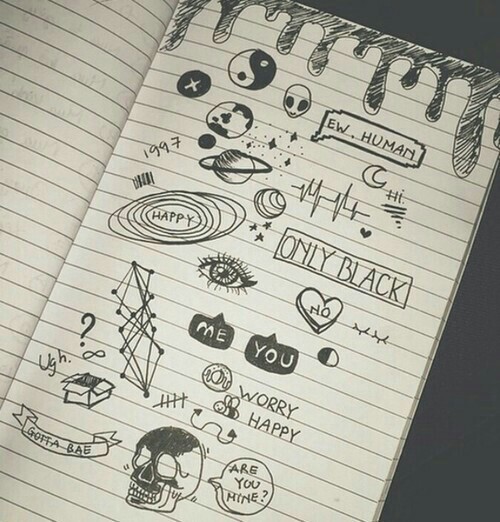 EW. HUMAN
1997
Hi.
HAPPY
ONLY BLACK
NO
ME
YOU
?
Ugh.
WORRY
HAPPY
GOTTA BAE
ARE
YOU
MINE?